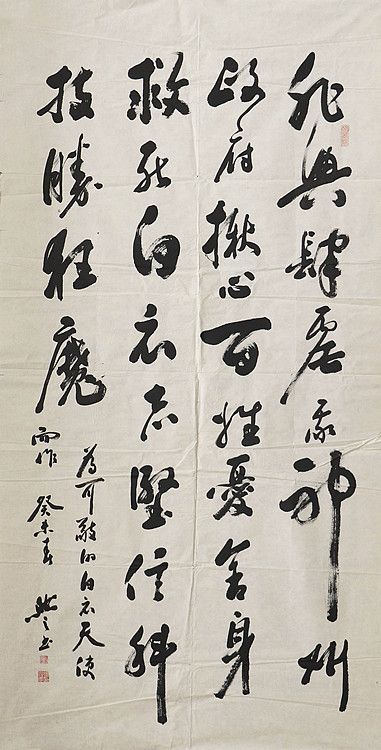 非典肆虐神州
政府揪心百姓憂舍身
救死白衣志堅信科
技勝狂魔
為可敬的白衣天使
而作 癸未春 書